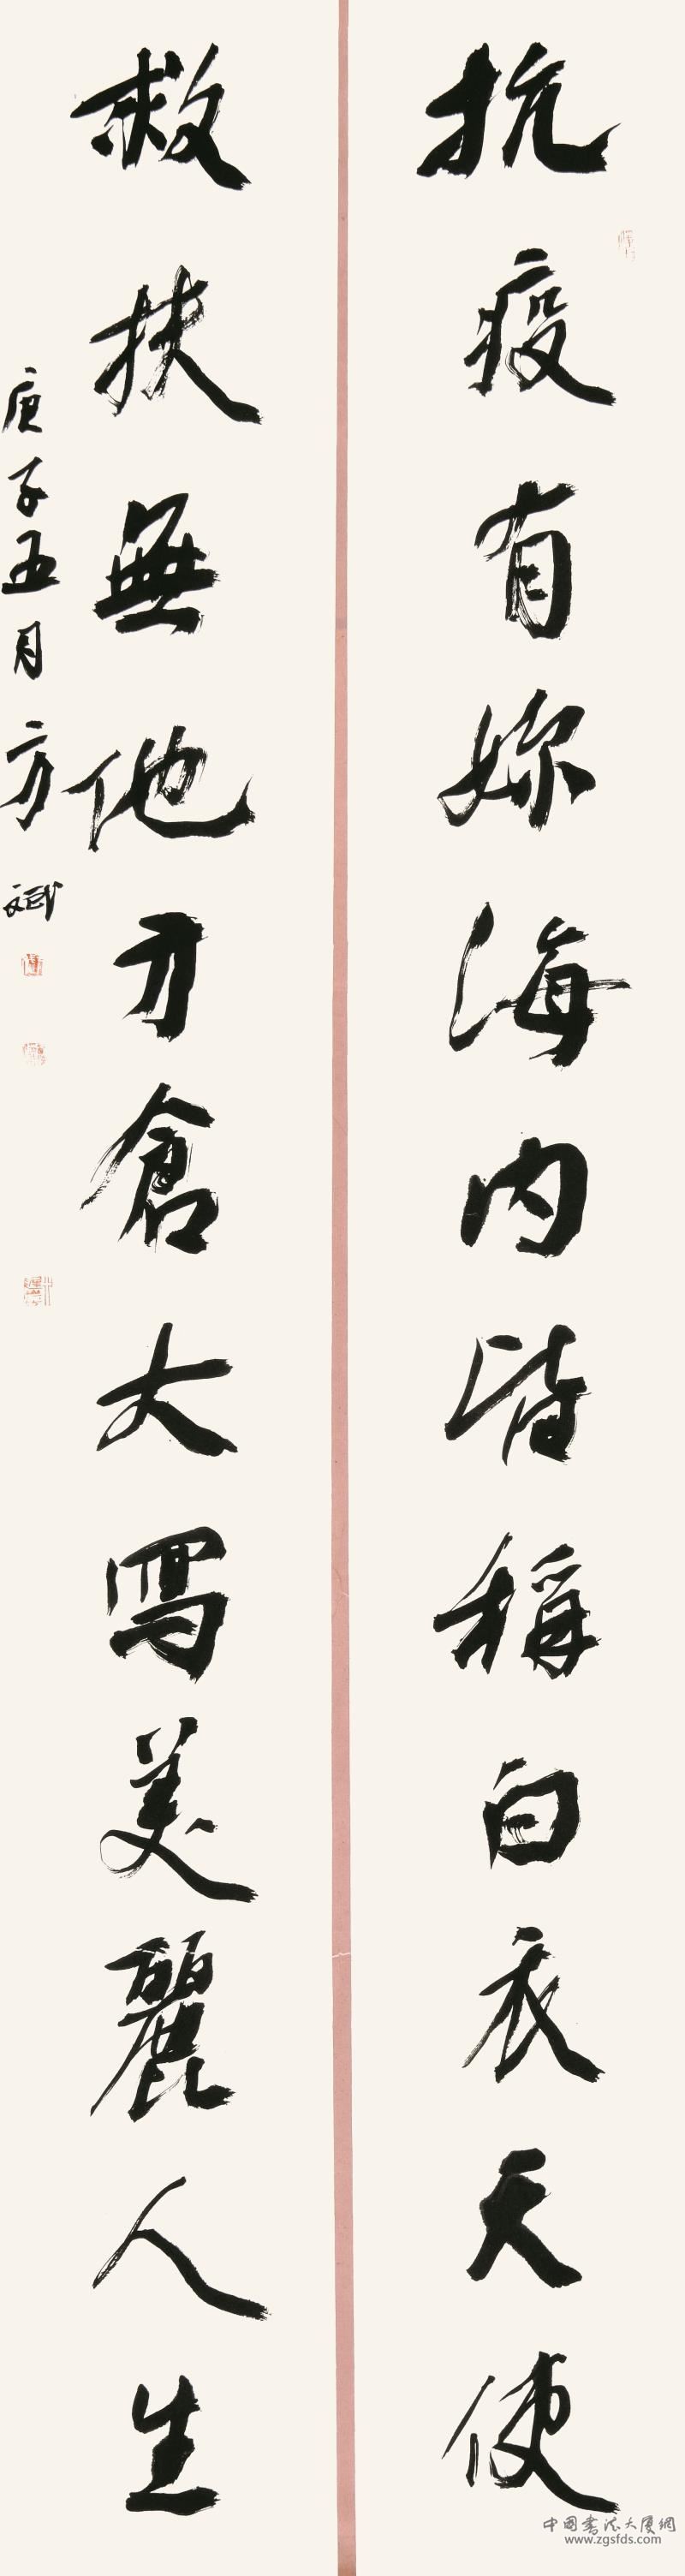 抗疫有妳海内皆稱白衣天使
救扶無他方倉大寫美麗人生
庚子五月方斌
中国书法大厦網
www.zgsfds.com